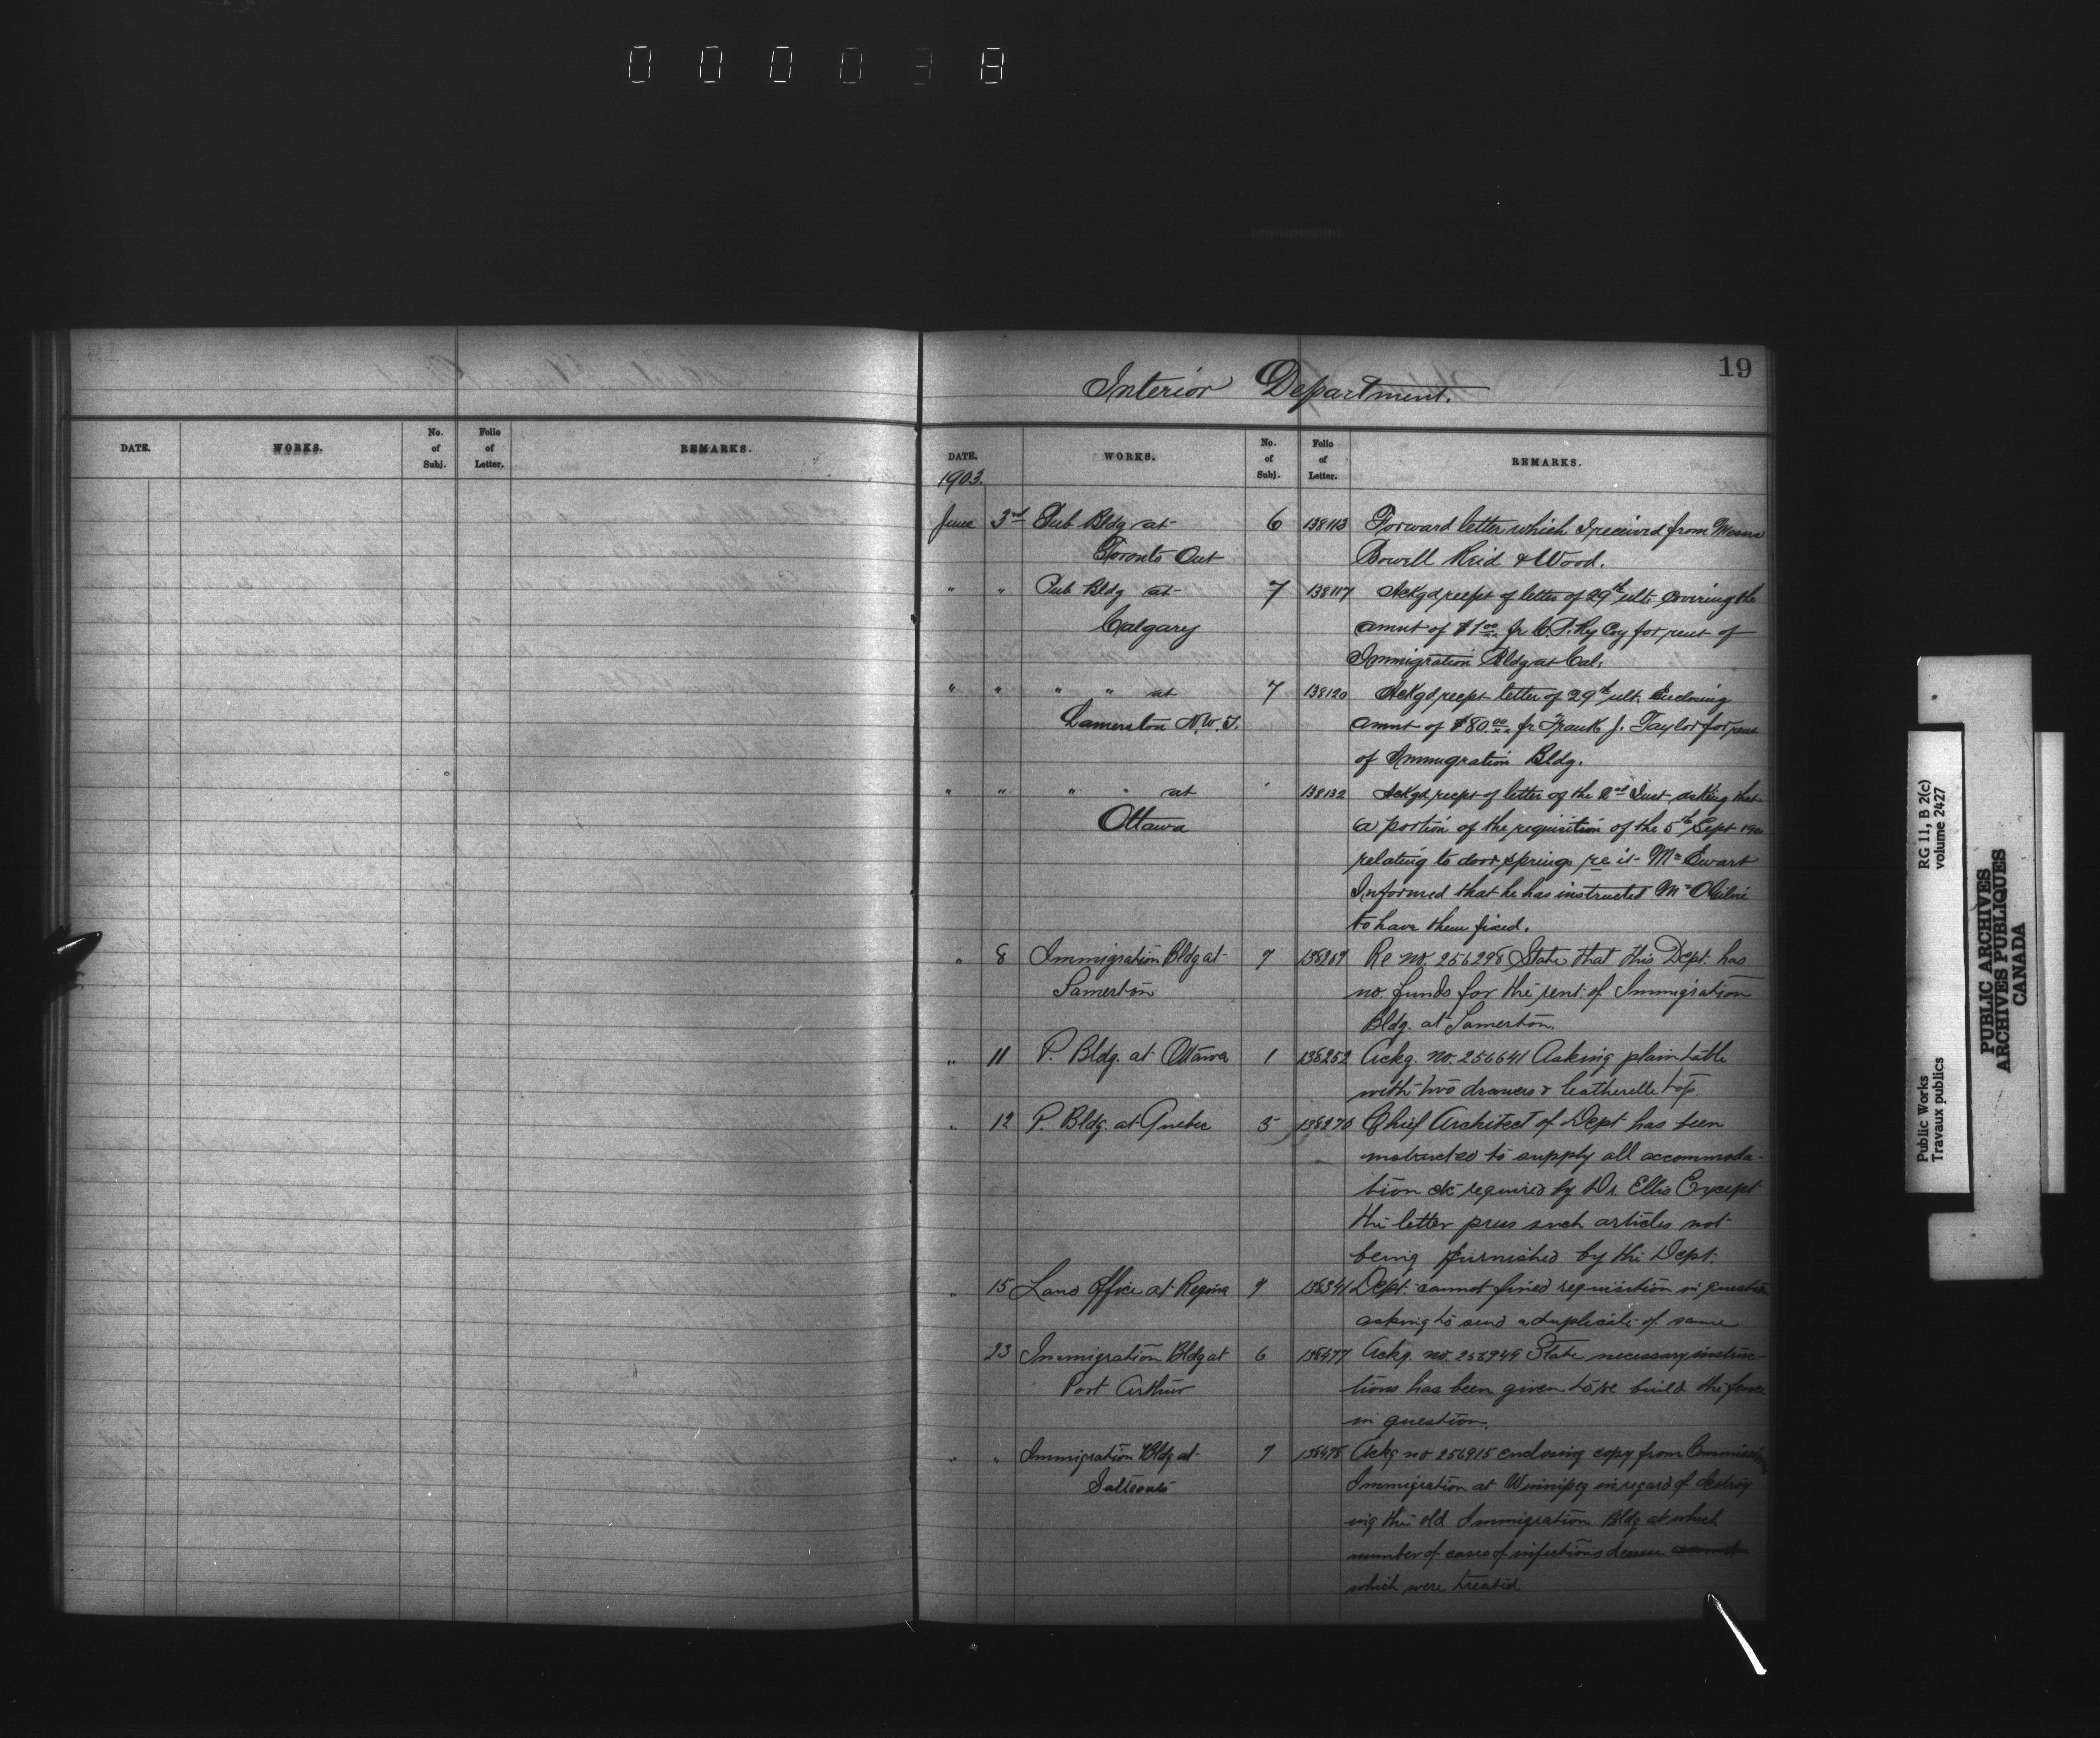 000038
19
Interior Department.
DATE. WORKS. No. of Subj. Folio of Letter. REMARKS.
DATE. WORKS. No. of Subj. Folio of Letter. REMARKS.
1903.
June 3rd Pub Bldg at 6 138113 Forward letter which I received from Messrs
Toronto Ont Bowell Reid & Wood.
" " Pub Bldg at 7 138117 Ackgd recept of letter of 29th ult. covering the
Calgary amnt of $1.00 fr C.P. Ry Coy for rent of
Immigration Bldg at Cal.
" " " " at 7 138120 Ackgd recept letter of 29th ult. Enclosing
Lamerton N.W.T. amnt of $80.00 fr Frank J. Taylor for rent
of Immigration Bldg.
" " " " at " 138132 Ackgd recept of letter of the 2nd Inst asking that
Ottawa a portion of the requisition of the 5th Sept
relating to door springs re it Mr Ewart
Informed that he has instructed Mr
to have them fixed.
" 8 Immigration Bldg at 7 138209 Re no. 256298 State that this Dept. has
Lamerton no. funds for the rent of Immigration
Bldg. at Lamerton.
" 11 P. Bldg. at Ottawa 1 138252 Ackg. no. 256641 Asking plain table
with two drawers & leatherette top.
" 12 P. Bldg. at Quebec 5 138270 Chief Architect of Dept has been
instructed to supply all accommoda-
tion etc required by Dr. Ellis Except
the letter press such articles not
being furnished by the Dept.
" 15 Land Office at Regina 7 138341 Dept. cannot fined requisition in question
asking to send a duplicate of same
23 Immigration Bldg at 6 138477 Ackg. no. 256949 State necessary instruc-
Port Arthur tions has been given to re build the fence
in question.
" " Immigration Bldg at 7 138478 Ackg no 256915 enclosing copy from
Saltcoats Immigration at Winnipeg in regard of destroy
ing the old Immigration Bldg at which
number of cases of infectious
which were treated
RG 11, B 2(c)
volume 2427
Public Works
Travaux publics
PUBLIC ARCHIVES
ARCHIVES PUBLIQUES
CANADA